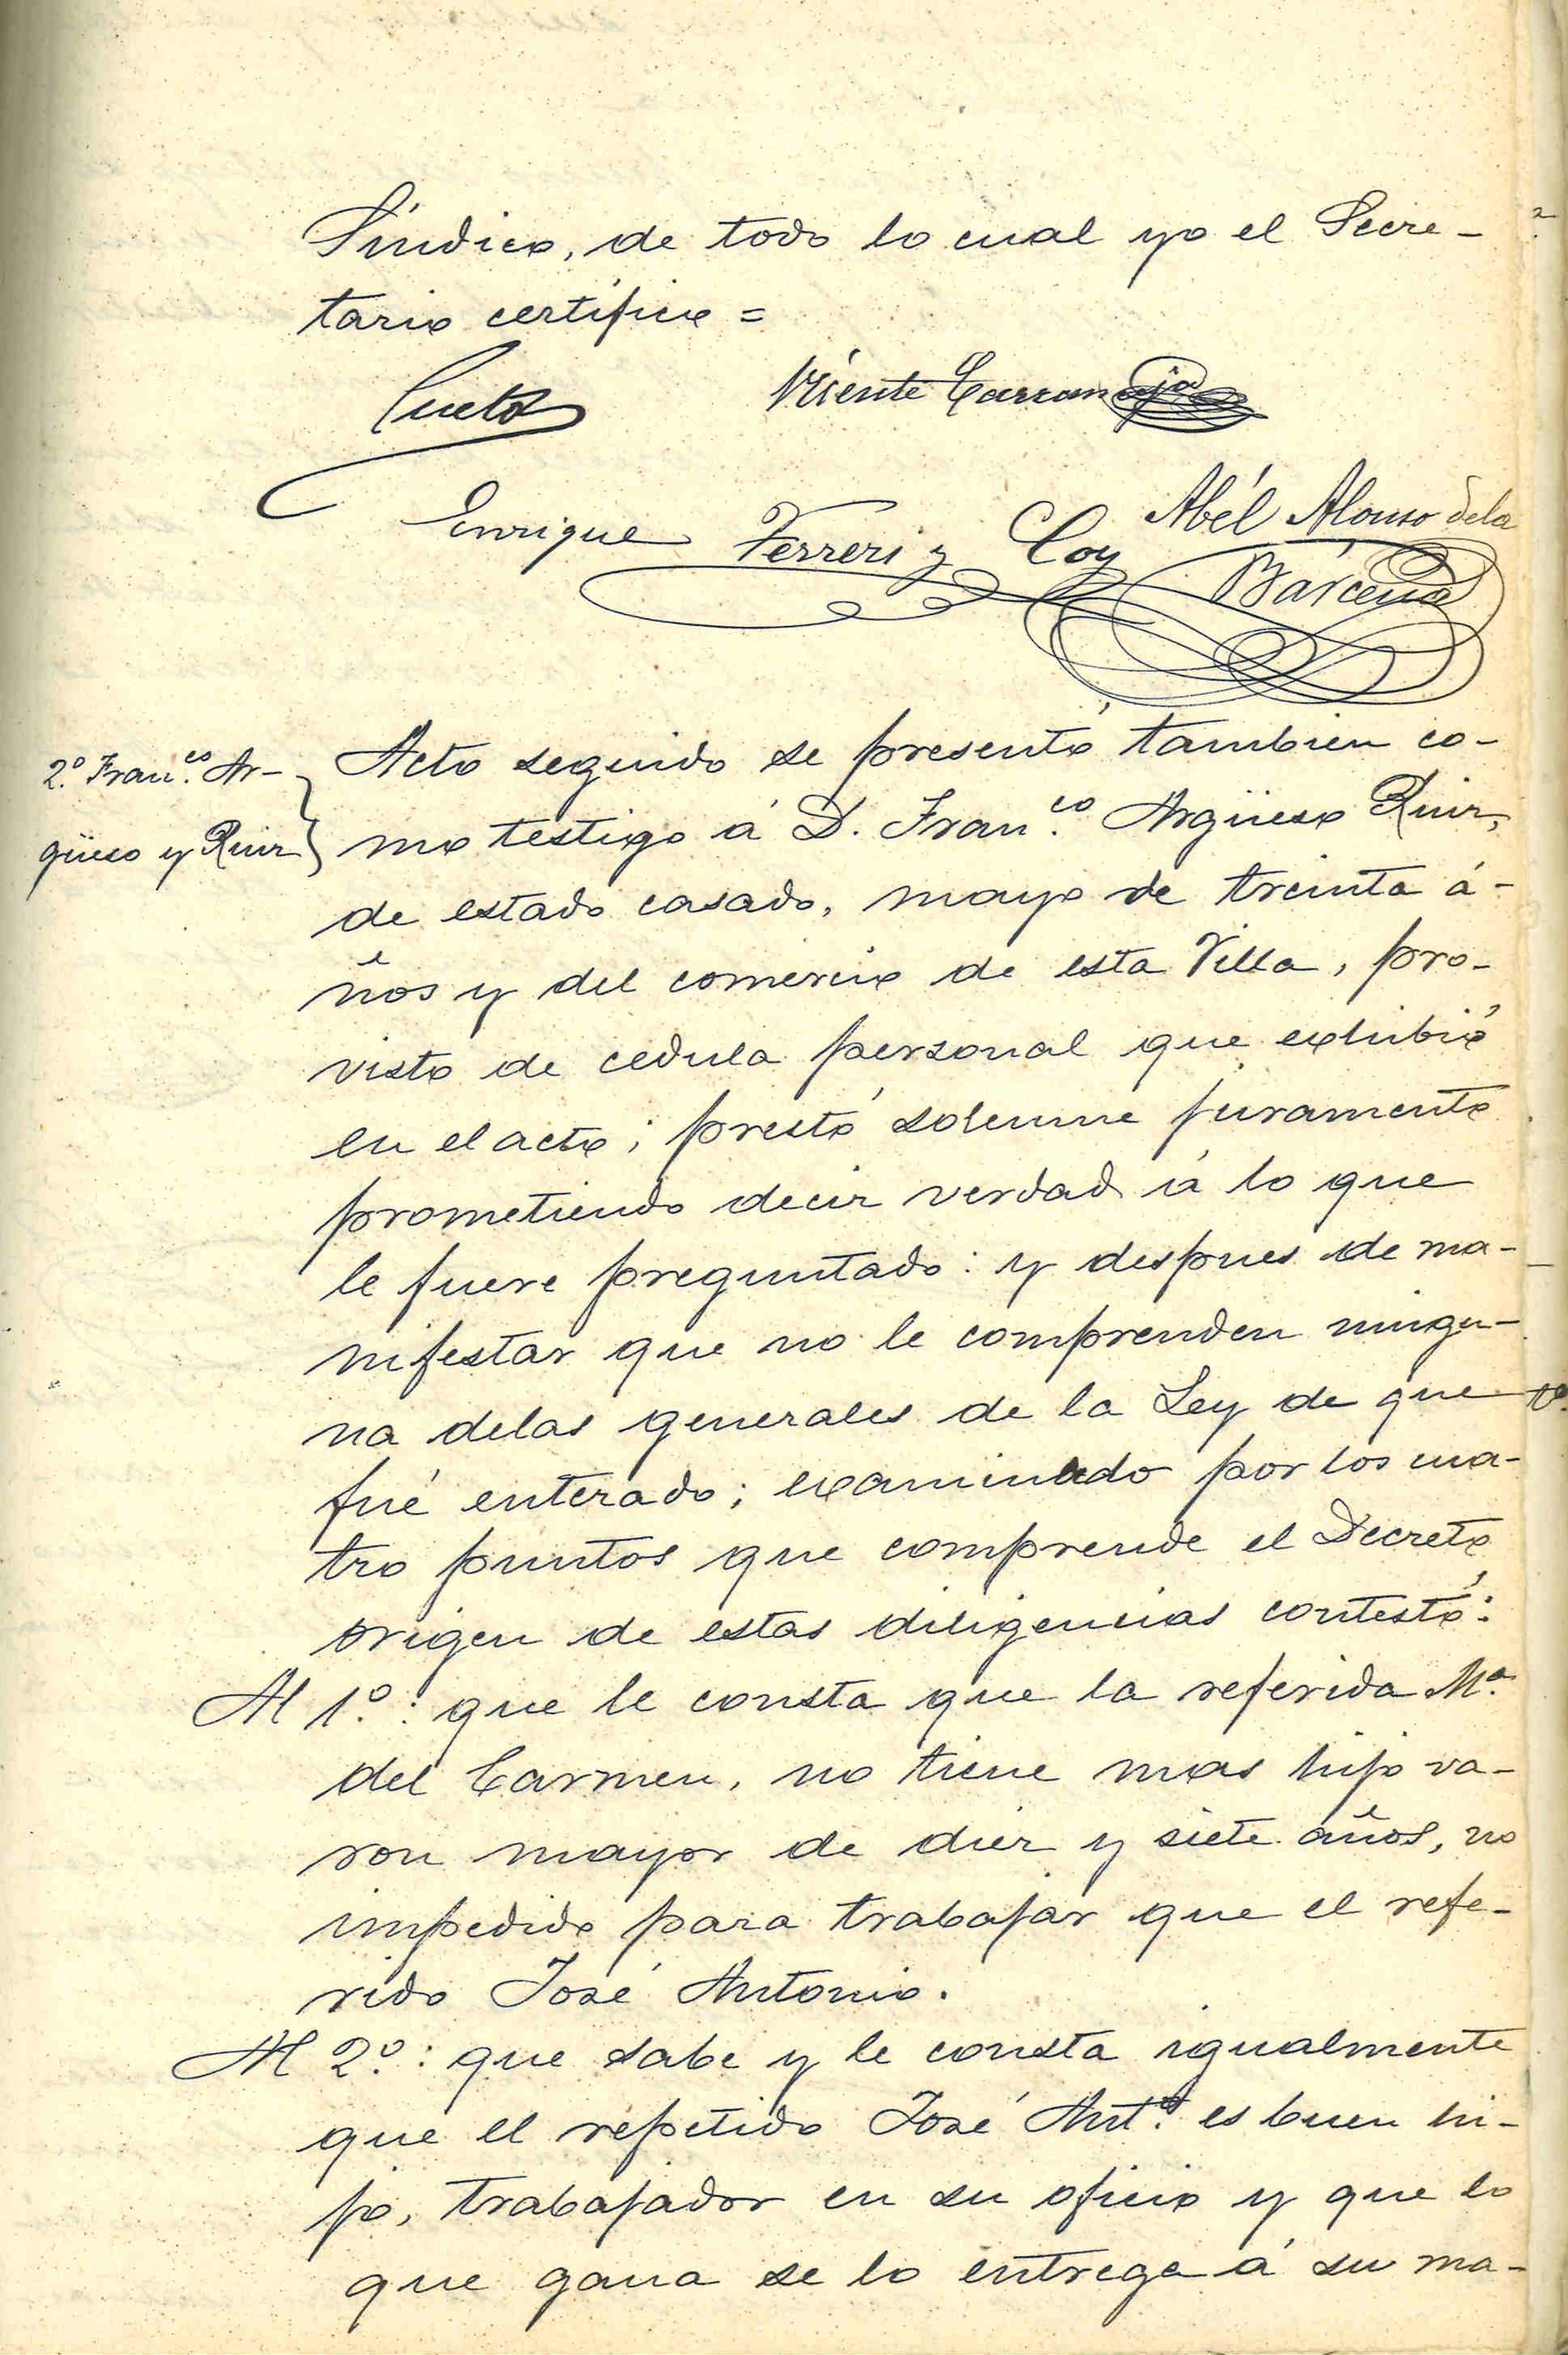 Síndico, de todo lo cual yo el Secre-
tario certifico =
Cueto
Vicente Carran
Enrique Ferreri y Coy
Abél Alonso de la
Bárcena
2.º Fran.co Ar-
güeso y Ruiz
Acto seguido se presentó tambien co-
mo testigo á D. Fran.co Argüeso Ruiz,
de estado casado, mayo de treinta á-
ños y del comercio de esta Villa, pro-
visto de cedula personal que exhibió
en el acto; prestó solemne juramento
prometiendo decir verdad á lo que
le fuere preguntado: y despues de ma-
nifestar que no le comprenden ningu-
na delas generales de la Ley de que
fué enterado; examinado por los cua-
tro puntos que comprende el Decreto
origen de estas diligencias contestó:
Al 1.º: que le consta que la referida M.ª
del Carmen, no tiene mas hijo va-
ron mayor de diez y siete años, no
impedido para trabajar que el refe-
rido José Antonio.
Al 2.º: que sabe y le consta igualmente
que el repetido José Ant.º es buen hi-
jo, trabajador en su oficio y que lo
que gana se lo entrega á su ma-